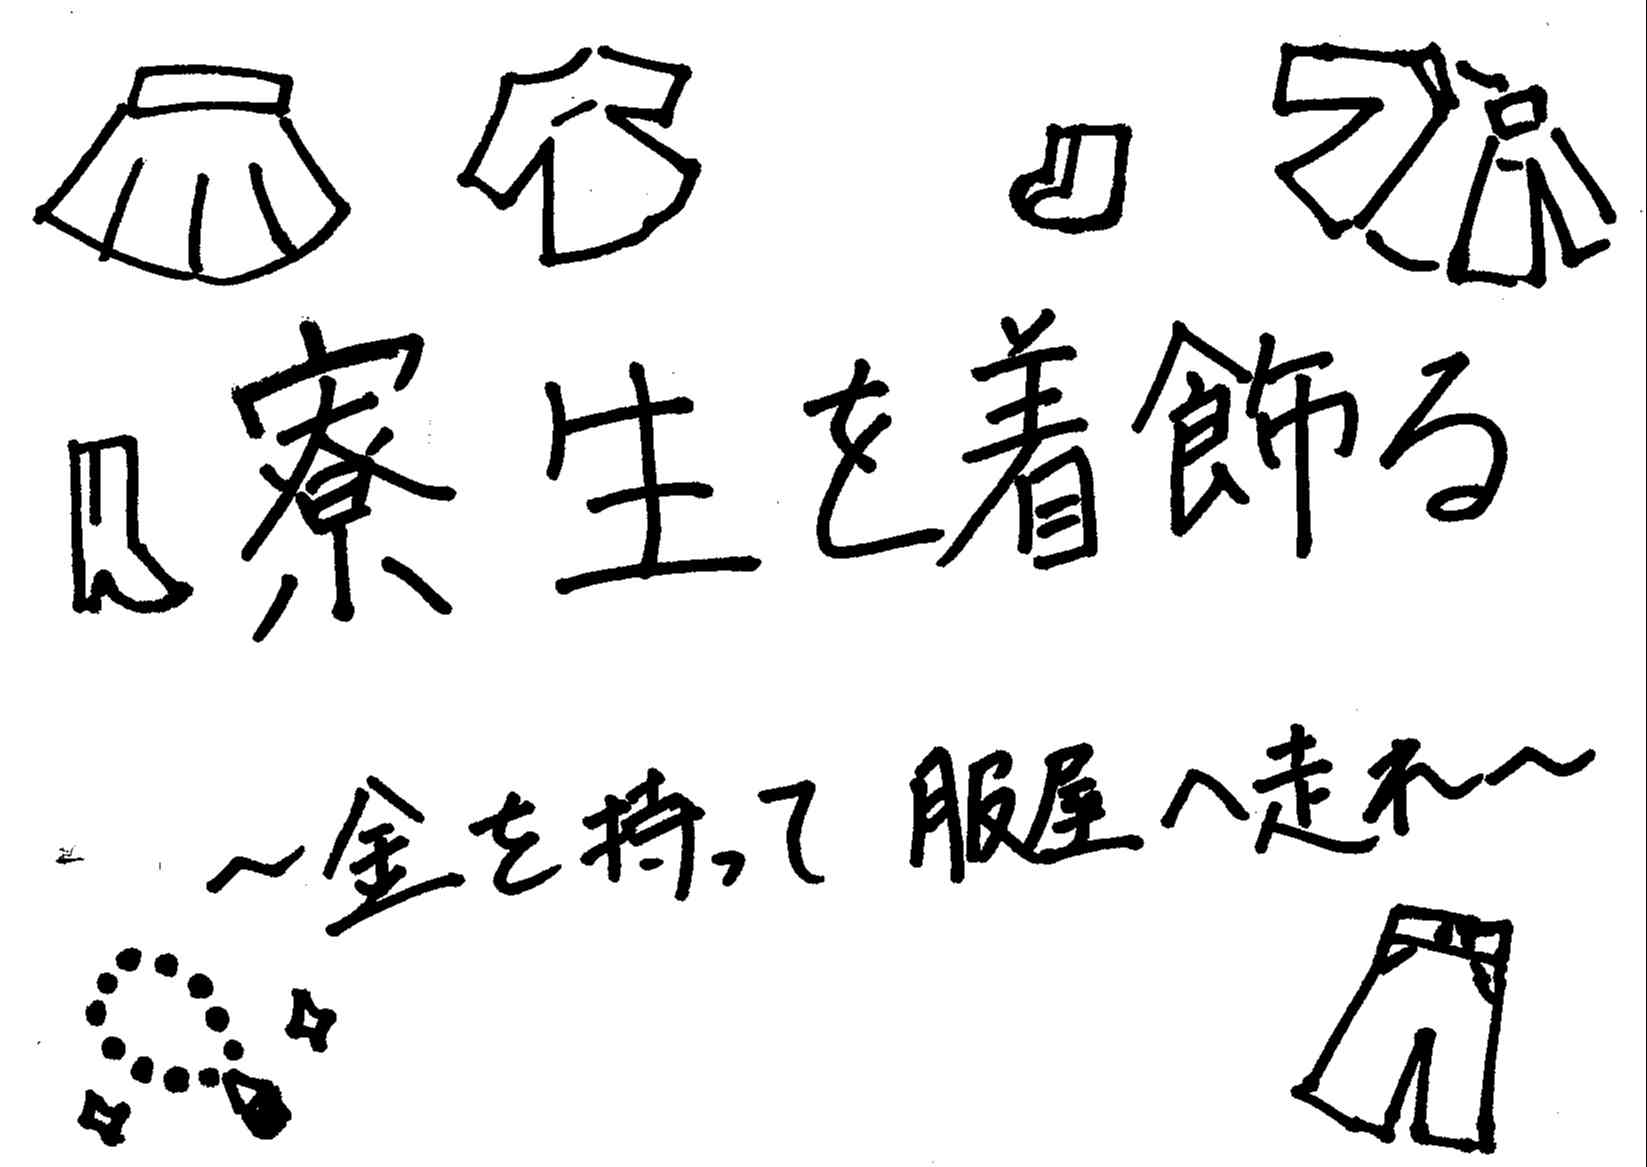 寮生を着飾る
～金を持って服屋へ走れ～